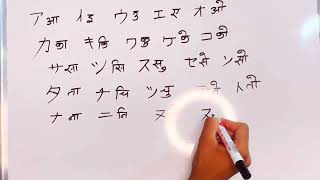 アआ イइ ウउ エए オओ
カका キकि クकु ケके コको
サसा シसि スसु セसे ソसो
タता チचि ツचु トतो
ナना ニनि ヌ